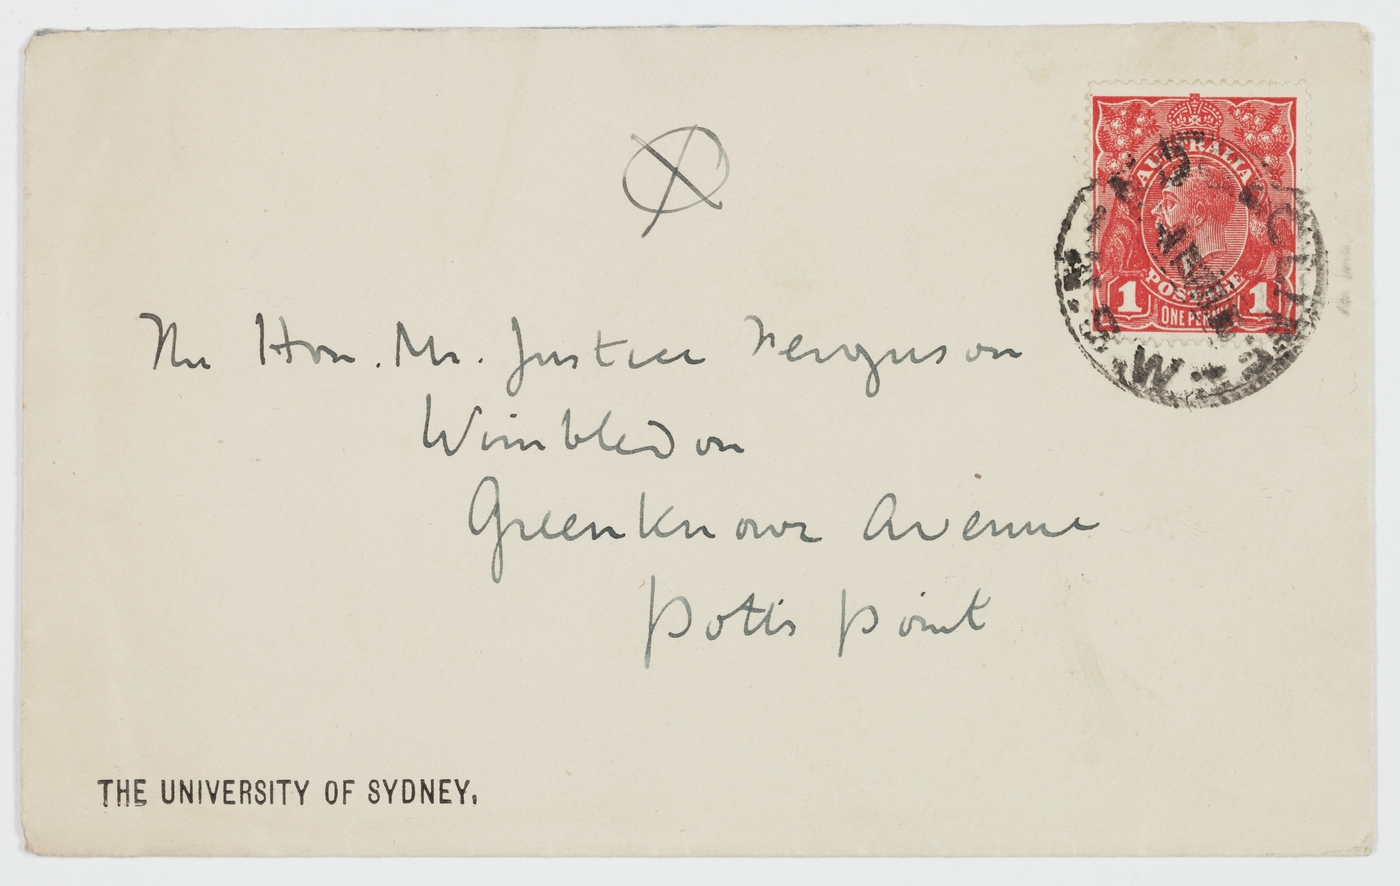 AUSTRALIA
POSTAGE
1 1
ONE PENNY
The Hon. Mr. Justice Ferguson
Wimbledon
Greenknowe Avenue
Potts Point
THE UNIVERSITY OF SYDNEY.